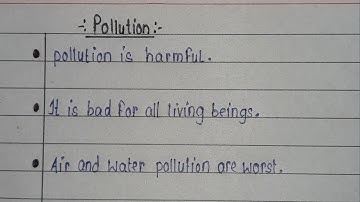 -: Pollution:-
• pollution is harmful.
• It is bad for all living beings.
• Air and water pollution are worst.